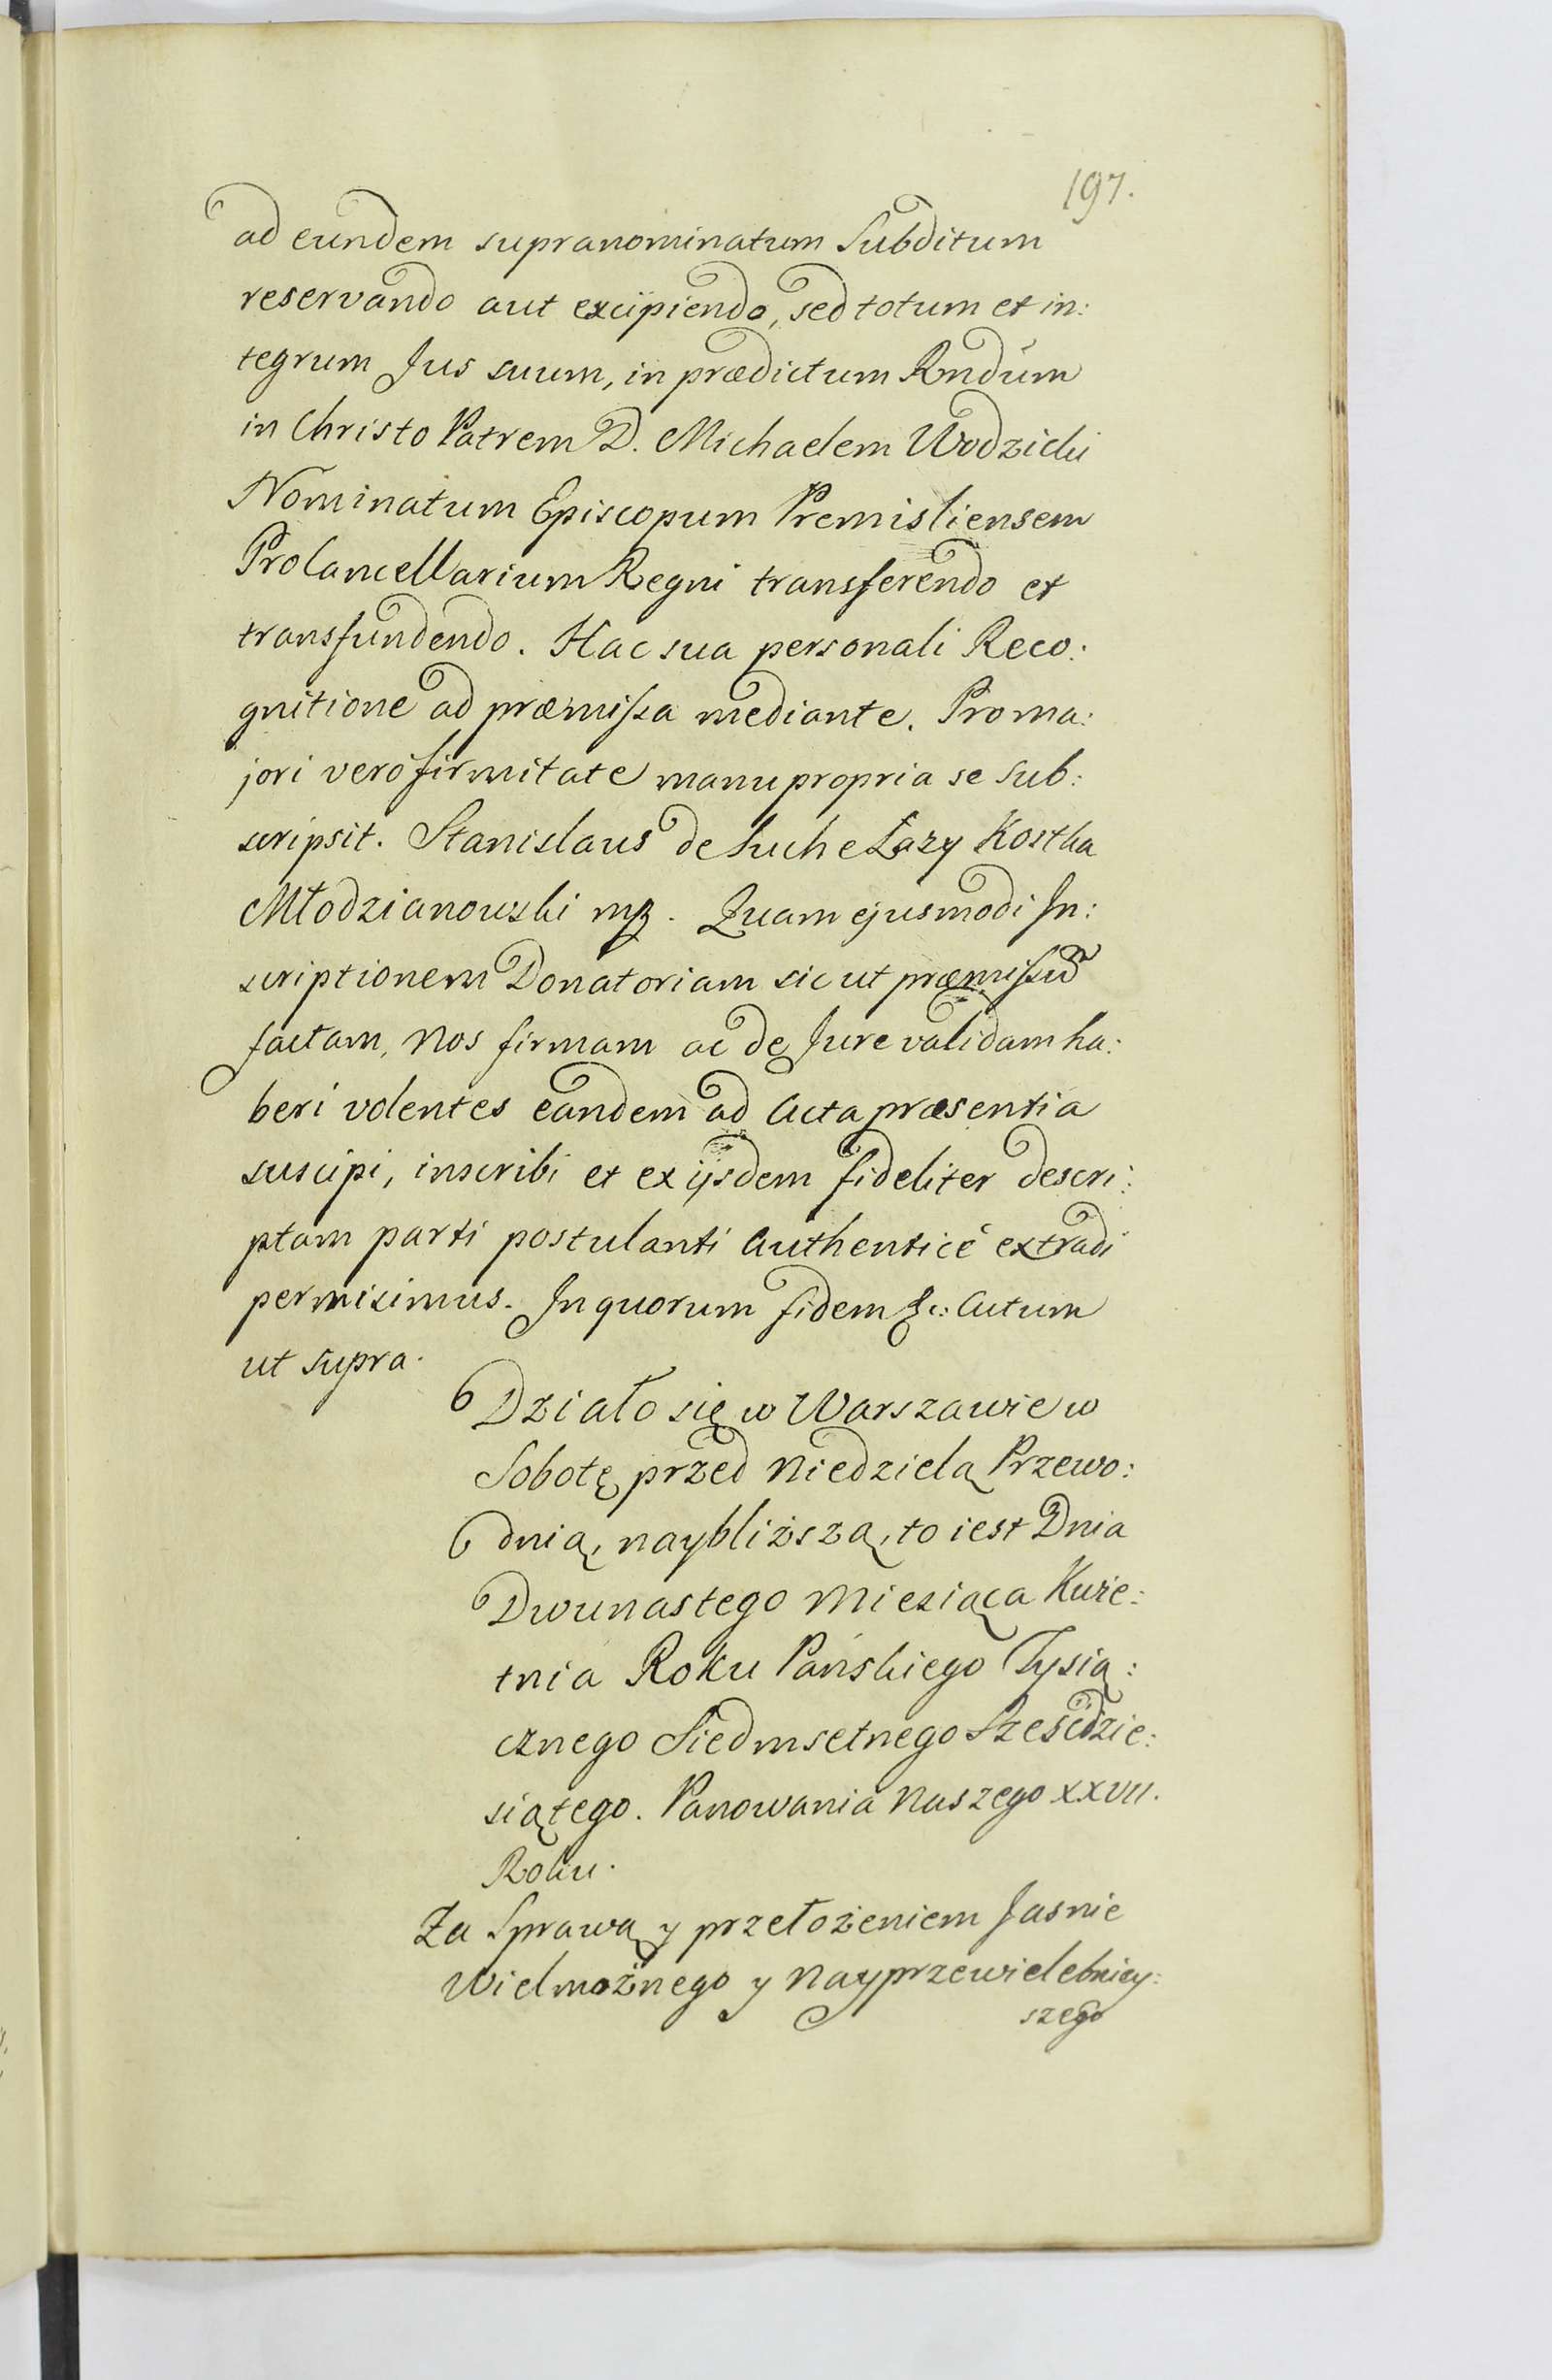 197.
ad eundem supranominatum Subditum
reservando aut excipiendo, sed totum et in:
tegrum Jus suum, in prædictum Rndum
in Christo Patrem D. Michaelem Wodzicki
Nominatum Episcopum Premisliensem
ProCancellarium Regni transferendo et
transfundendo. Hac sua personali Reco:
gnitione ad præmissa mediante. Pro ma:
jori verò firmitate manu propria se sub:
scripsit. Stanislaus de Suche Łazy Kostka
Młodzianowski mp. Quam ejusmodi In:
scriptionem Donatoriam sic ut præmissũ
factam, Nos firmam ac de Jure validam ha:
beri volentes eandem ad Acta præsentia
suscipi, inscribi et ex ijsdem fideliter descri:
ptam parti postulanti Authenticè extradi
permisimus. In quorum fidem &c: Actum
ut supra.
Działo się w Warszawie w
Sobotę przed Niedzielą Przewo:
dnią, naybliższą, to iest Dnia
Dwunastego Miesiąca Kwie:
tnia Roku Pańskiego Tysią:
cznego Siedmsetnego Sześćdzie:
siątego. Panowania Naszego XXVII.
Roku.
Za Sprawą y przełożeniem Jasnie
Wielmożnego y Nayprzewielebniey:
szego